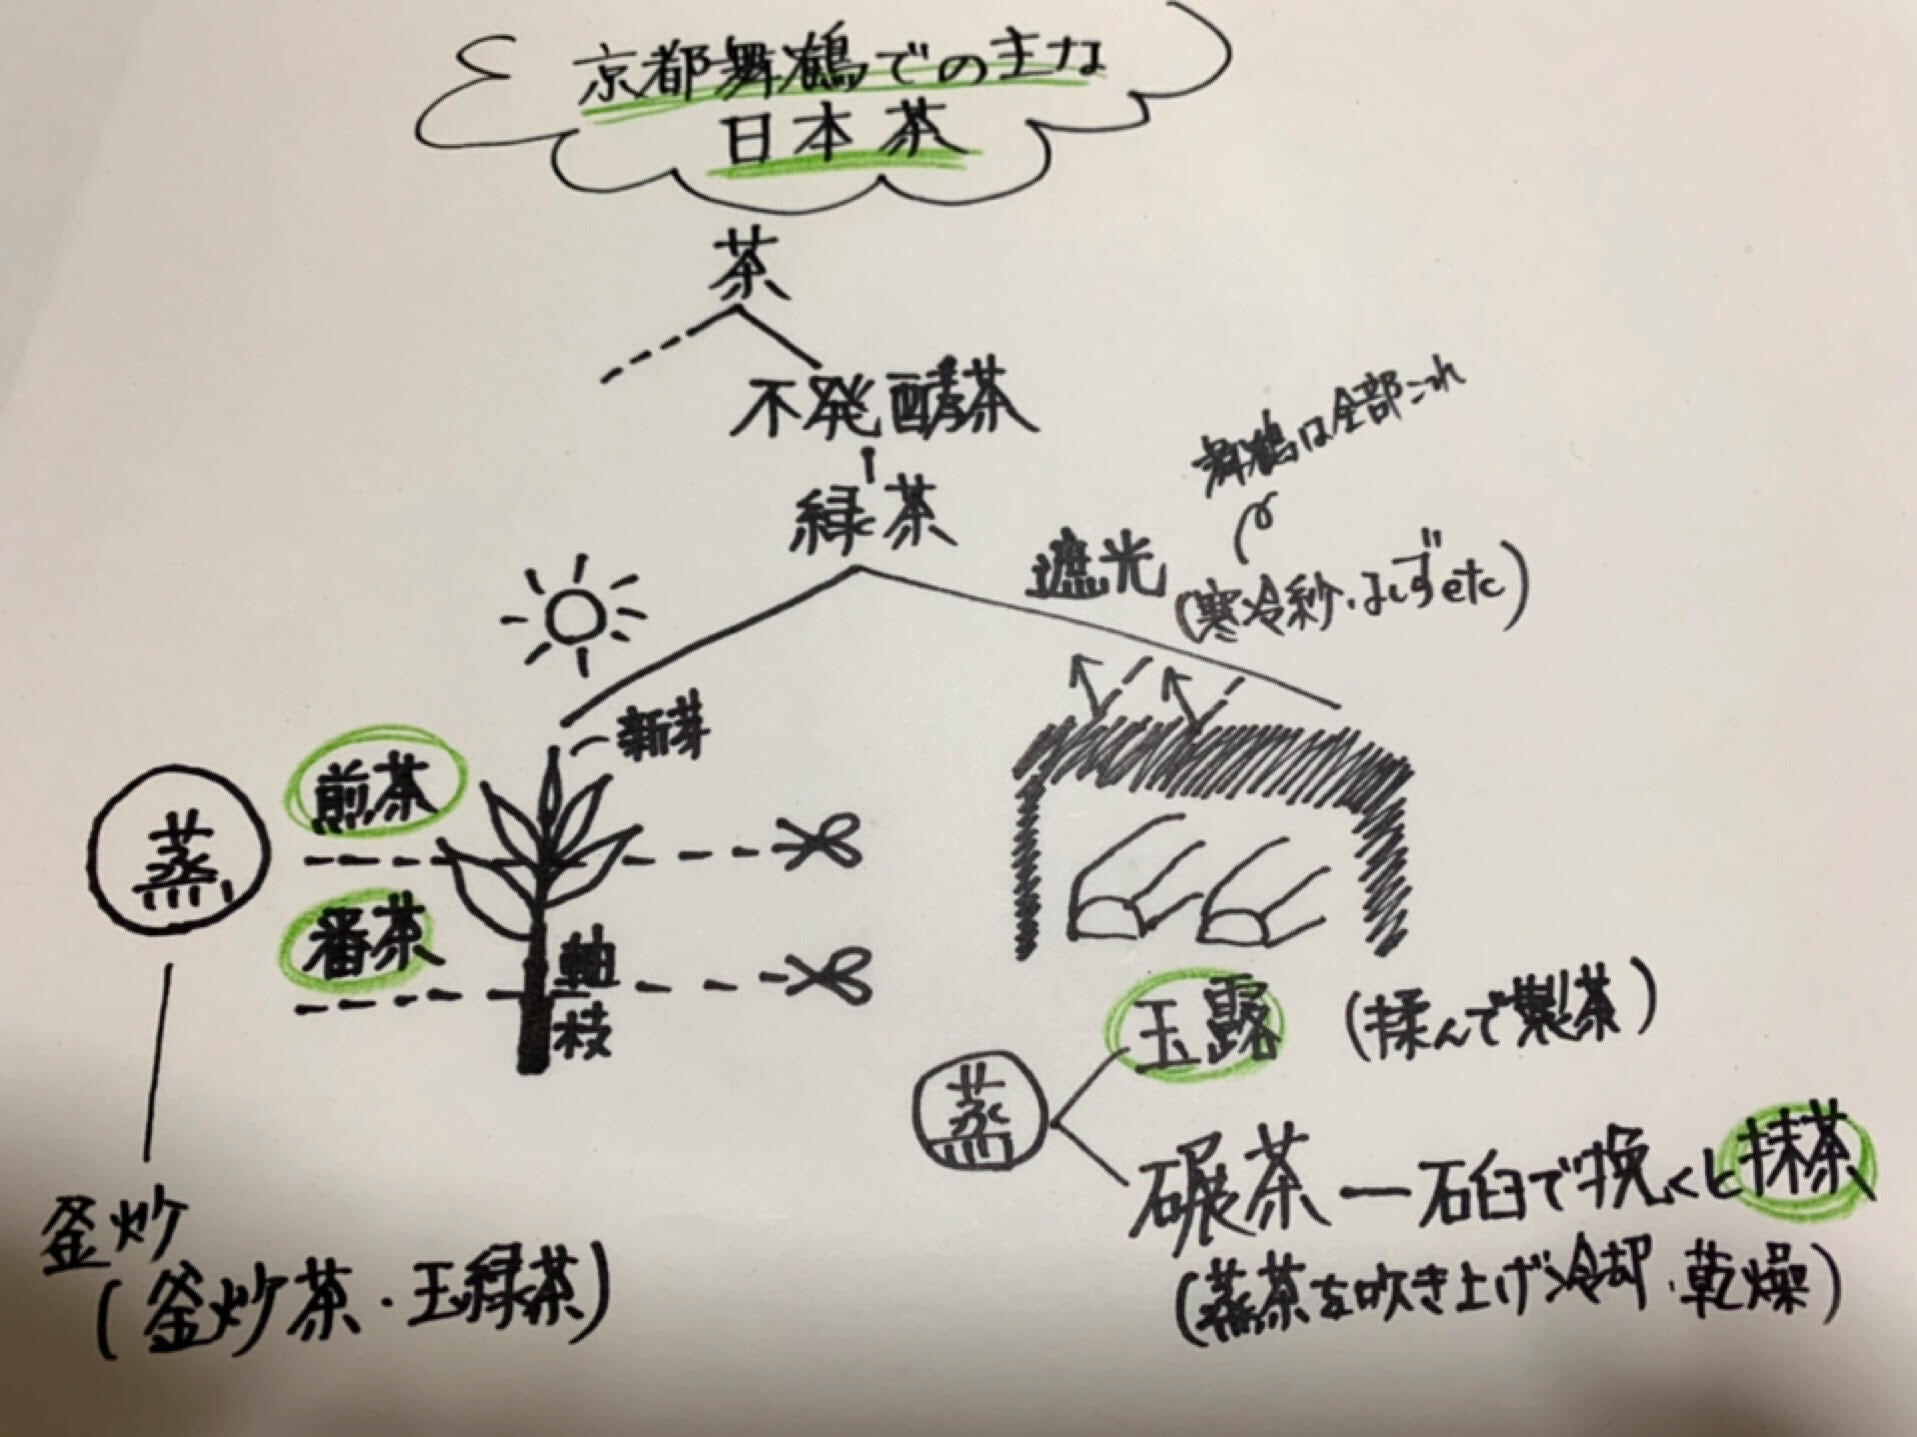 京都舞鶴での主な
日本茶
茶
不発酵茶
緑茶
舞鶴は全部これ
遮光
(寒冷紗・よしずetc)
新芽
煎茶
蒸
番茶
軸
枝
玉露 (揉んで製茶)
蒸
碾茶ー石臼で挽くと抹茶
(蒸茶を吹き上げ冷却・乾燥)
釜炒
(釜炒茶・玉緑茶)